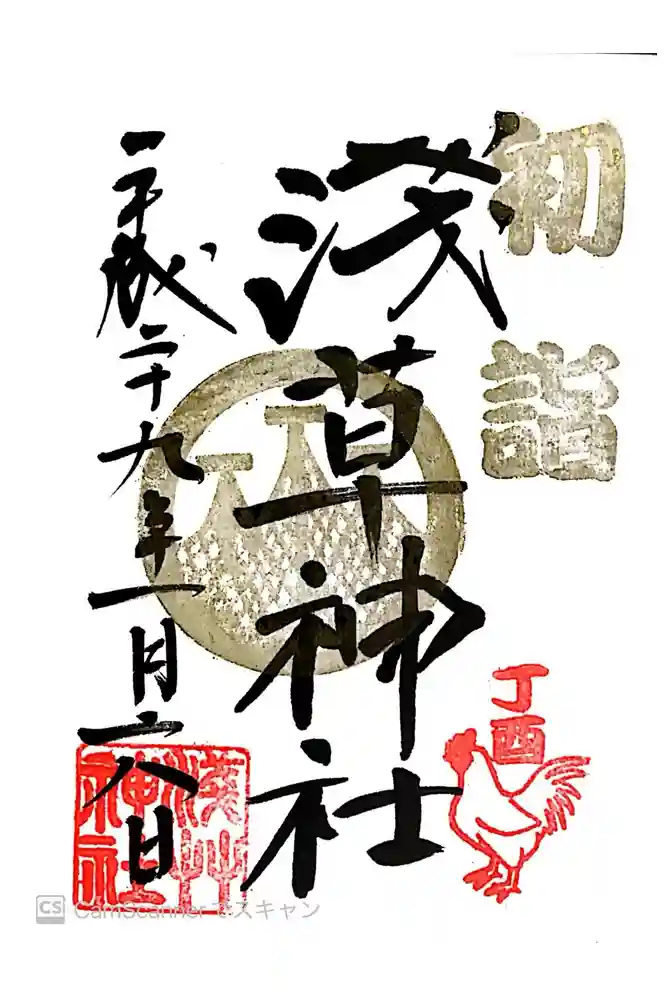 初詣
丁酉
浅草神社
平成二十九年一月六日
淺草神社
CS CamScannerでスキャン